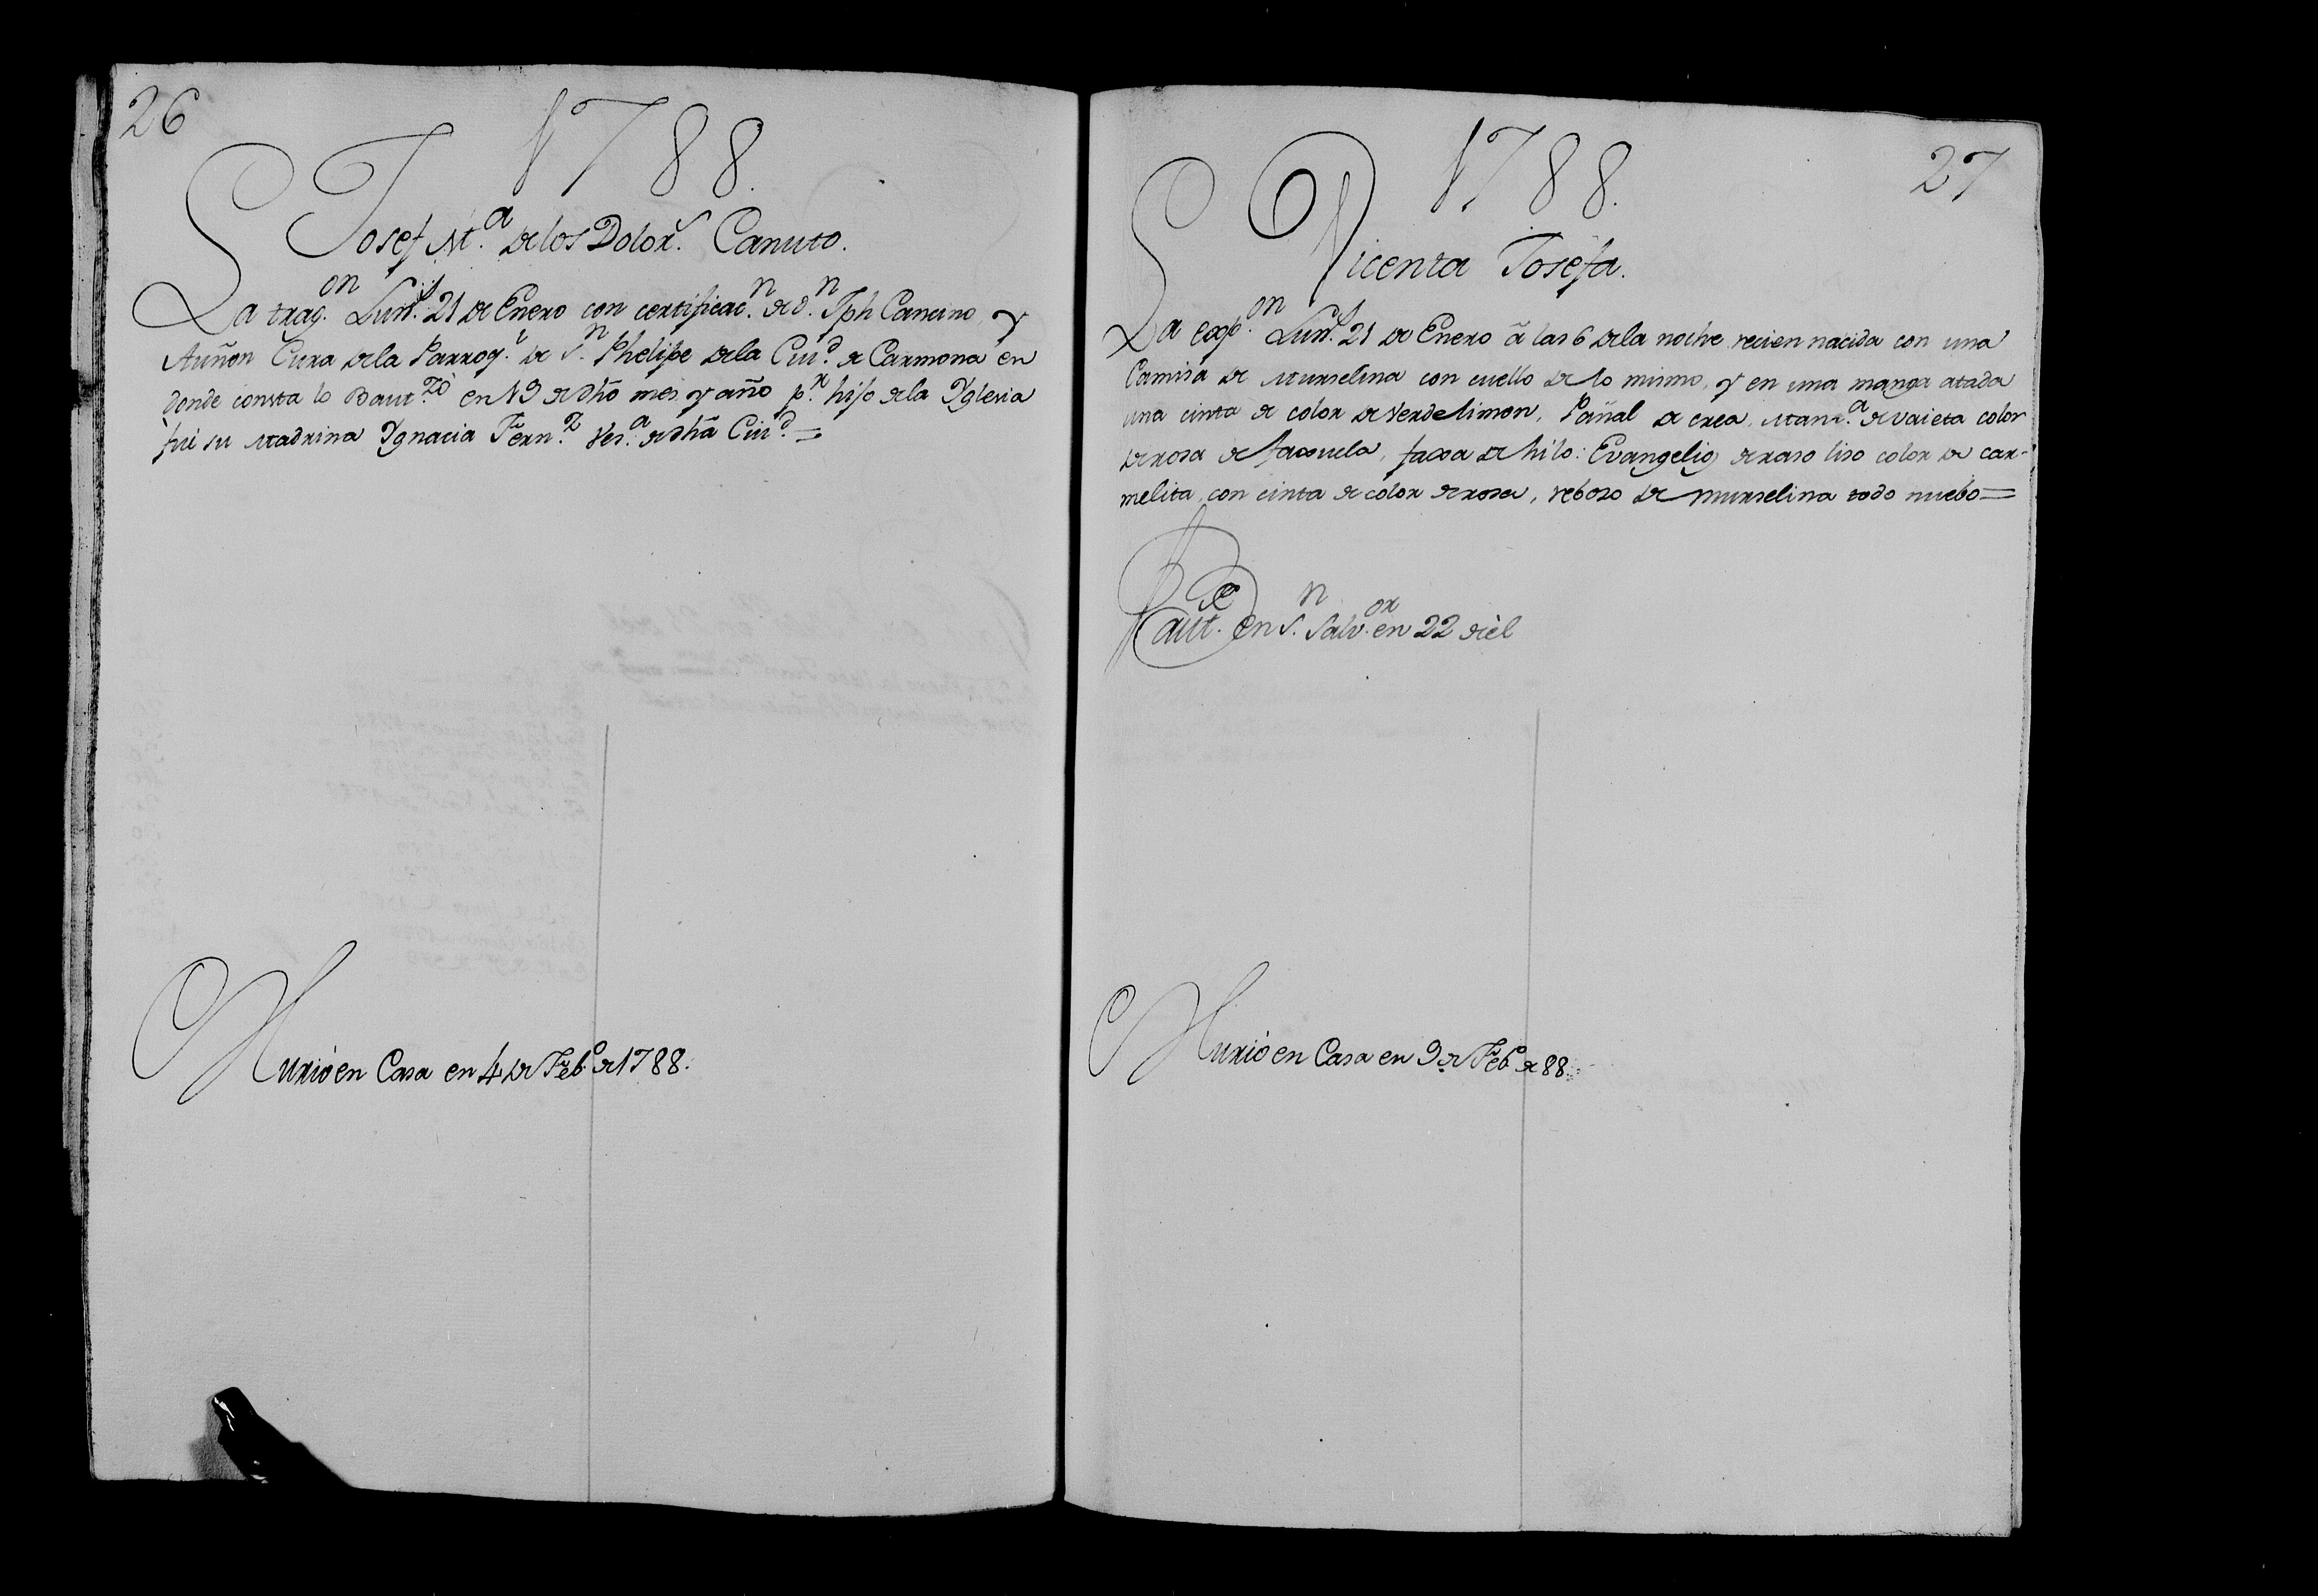 26
1788.
Josef M.ª de los Dolor.s Canuto.
La trag.on Lun.s 21 de Enero con certificac.n de d.n Jph Cansino, y
Auñon Cura de la Parroq.ª de S.n Phelipe de la Ciu.d de Carmona en
donde consta lo Baut.zó en 19 de dhõ mes y año p.r hijo de la Yglesia
fue su Madrina Ygnacia Fern.z Ves.ª de dhã Ciu.d =
Murió en Casa en 4 de Feb.o de 1788.
27
1788.
Vicenta Josefa.
La exp.on Lun.s 21 de Enero â las 6 de la noche recien nacida con una
Camisa de Murselina con cuello de lo mismo, y en una manga atada
una cinta de color de verde limon, Pañal de crea, Mant.ª de vaieta color
de rosa de faxuela, faxa de hilo: Evangelio de raso liso color de car-
melita, con cinta de color de rosa, reboso de murselina todo nuebo =
Baut.se en S.n Salv.or en 22 de èl
Murió en Casa en 9 de Feb.o de 88.